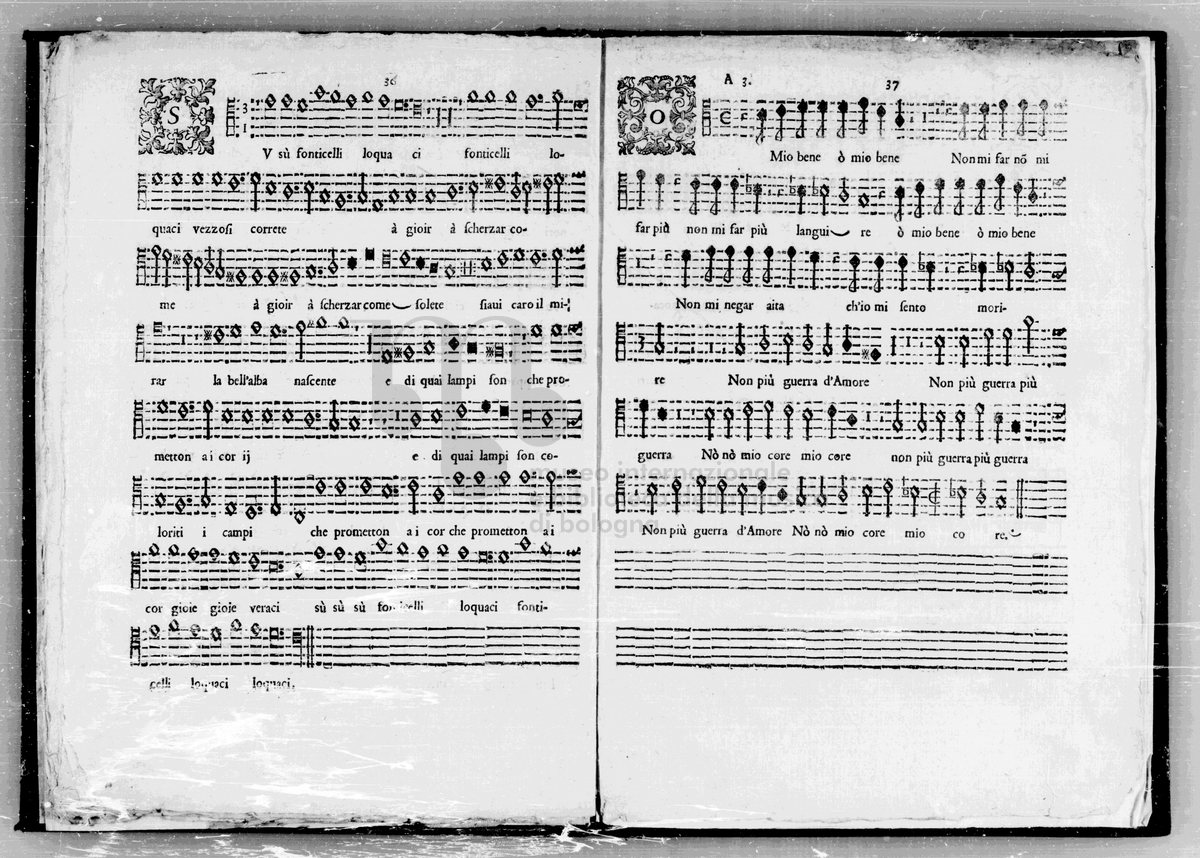 36
S
V sù fonticelli loqua ci fonticelli lo-
quaci vezzosi correte à gioir à scherzar co-
me à gioir à scherzar come solete siaui caro il mi-
rar la bell'alba nascente e di quai lampi son che pro-
metton a i cor ij e di quai lampi son co-
loriti i campi che prometton a i cor che prometton a i
cor gioie gioie veraci sù sù sù fonticelli loquaci fonti-
celli loquaci loquaci.
A 3. 37
O
Mio bene ò mio bene Non mi far nõ mi
far più non mi far più langui re ò mio bene ò mio bene
Non mi negar aita ch'io mi sento mori-
re Non più guerra d'Amore Non più guerra più
guerra Nò nò mio core mio core non più guerra più guerra
Non più guerra d'Amore Nò nò mio core mio co re.
museo internazionale
di bologna